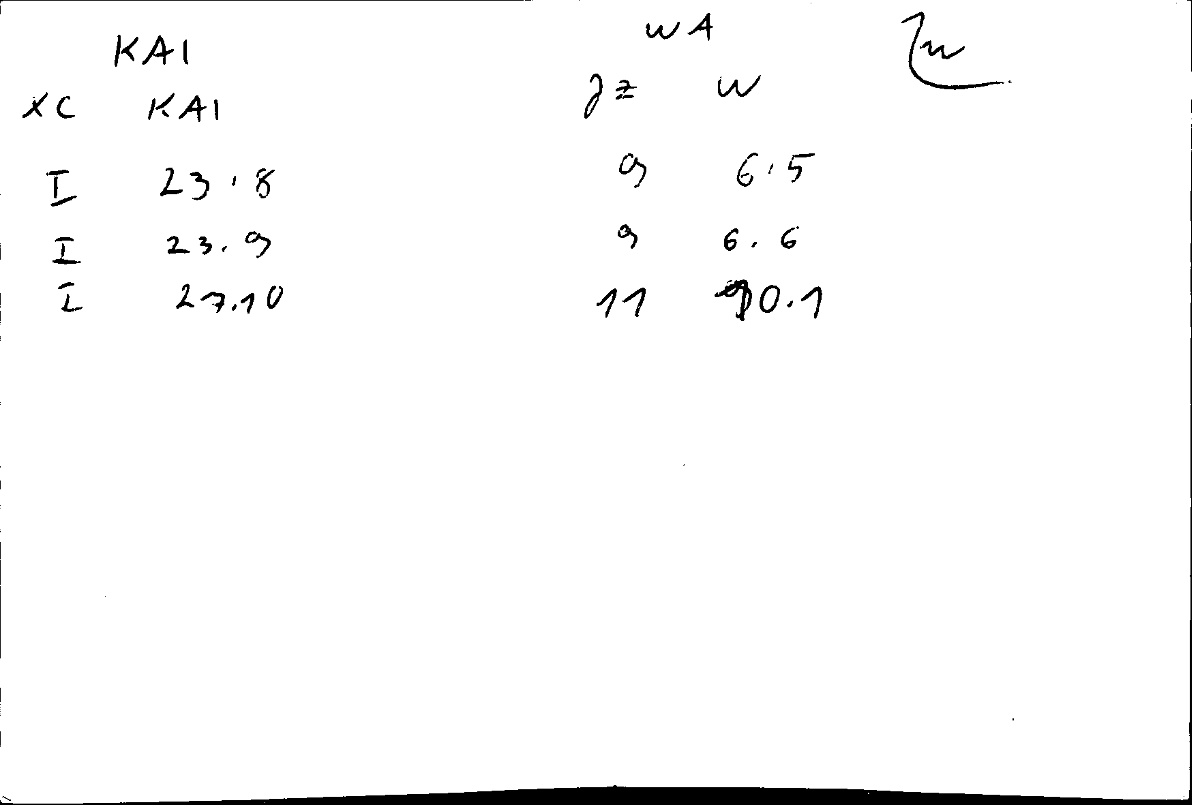 KAI WA
XC KAI JZ W
I 23.8 9 6.5
I 23.9 9 6.6
I 27.10 11 10.1